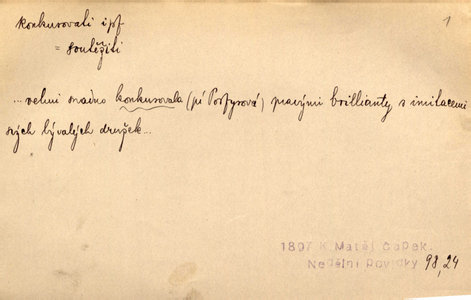 konkurovati ipf
1
= soutěžiti
...velmi snadno konkurovala (pí Porfyrová) pravými brillianty s imitacemi
svých bývalých družek...
1897 K. Matěj Čapek.
Nedělní povídky 98,24